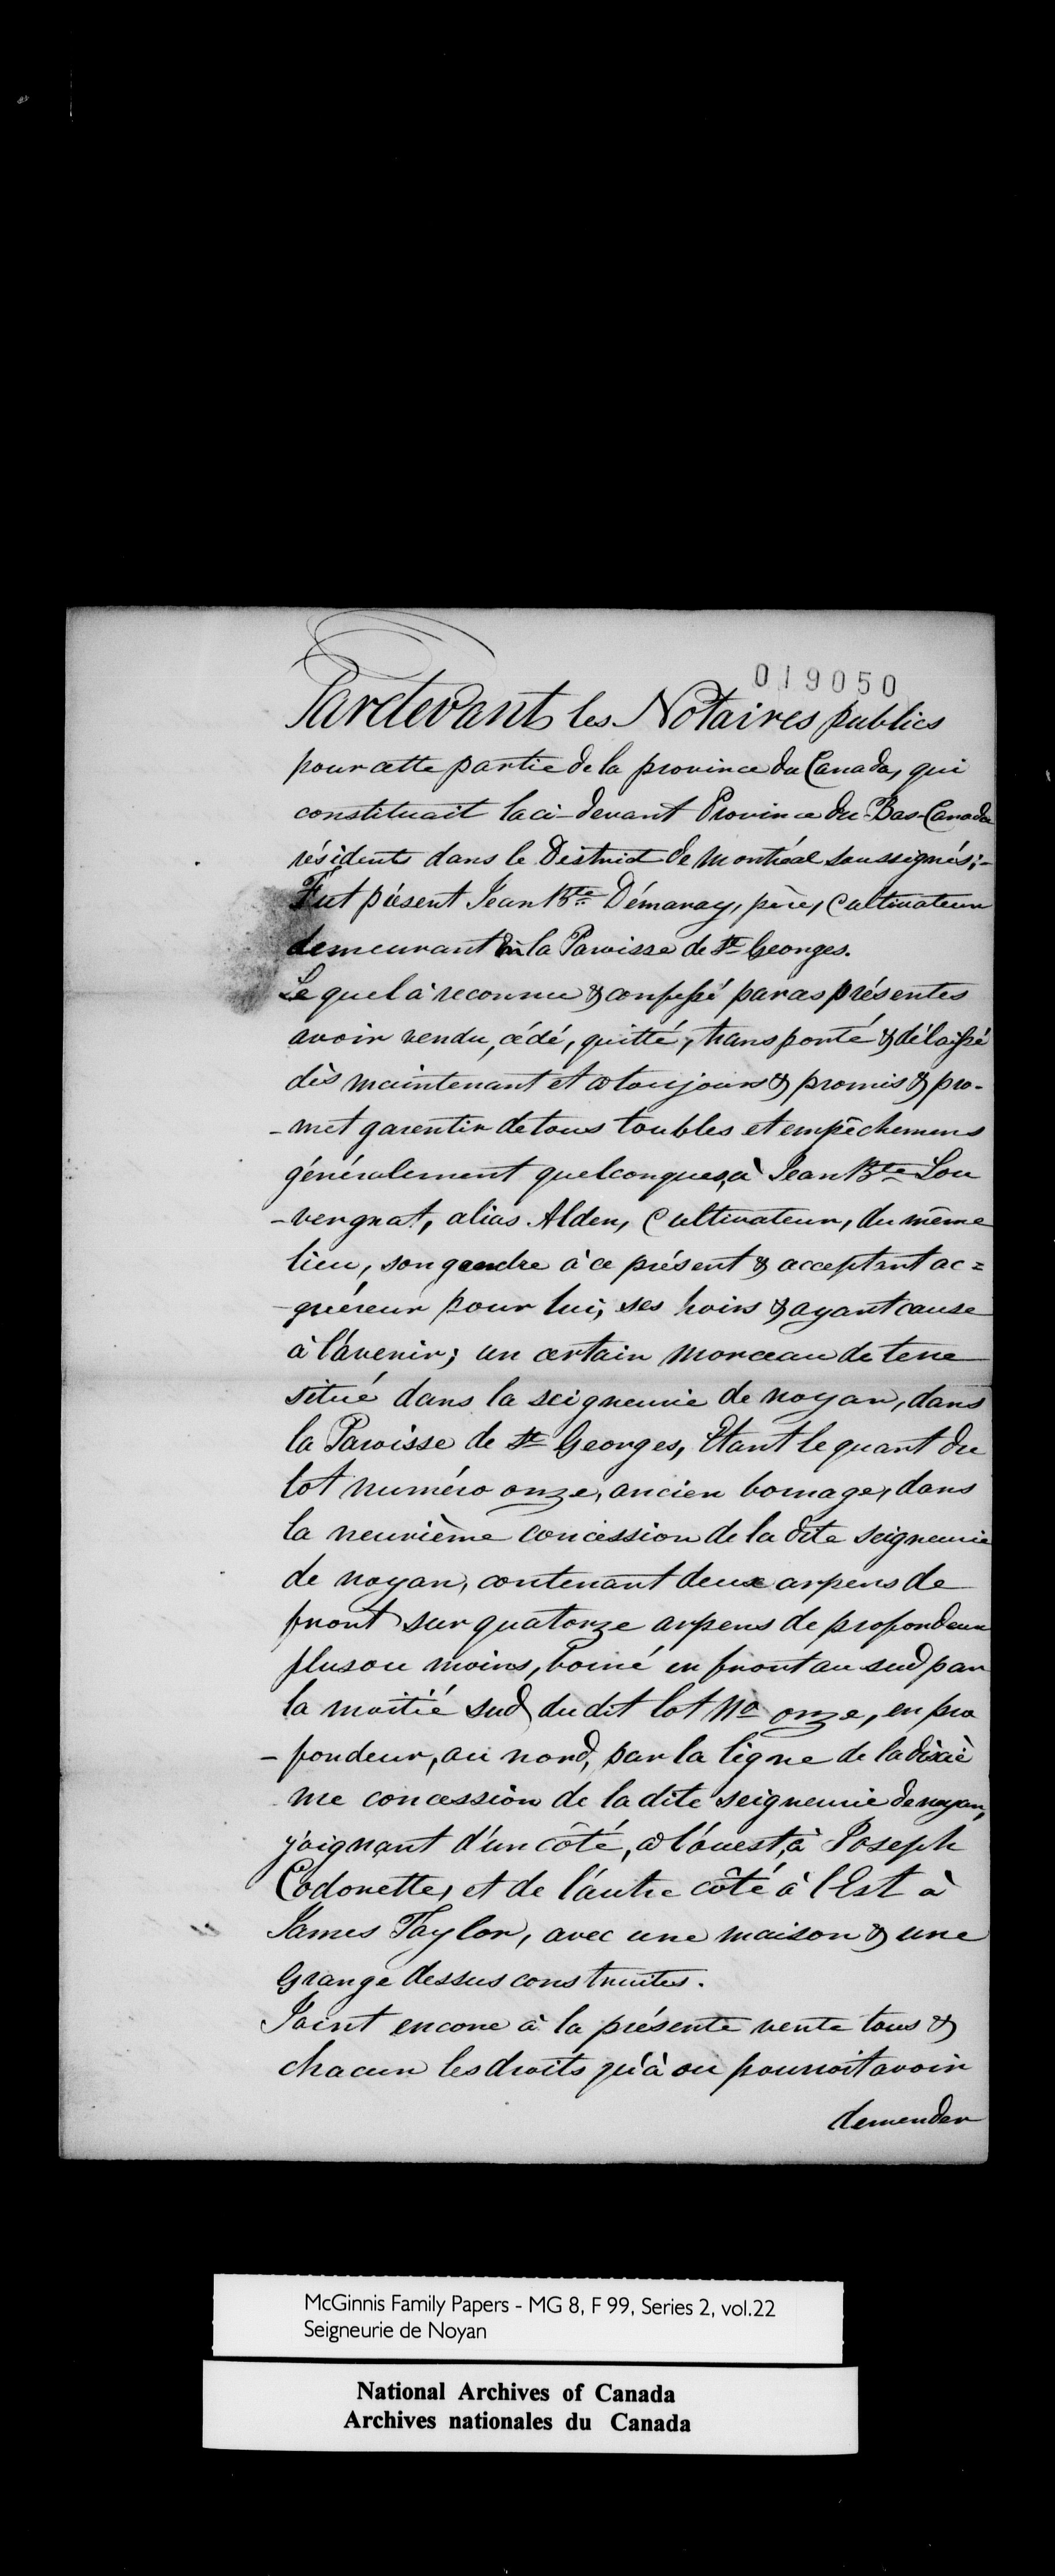 019050
Pardevant les Notaires publics
pour cette partie de la province du Canada, qui
constituait la ci-devant Province du Bas-Canada
résidents dans le District de Montréal soussignés;-
Fut présent Jean Bte Démaray, père, Cultivateur
demeurant en la Paroisse de St Georges.
Lequel à reconnu & confessé par ces présentes
avoir vendu, cédé, quitté, transporté & délaissé
dès maintenant et à toujours & promis & pro-
-met garentir de tous toubles et empêchemens
généralement quelconques, à Jean Bte Lou
-vergnat, alias Alden, Cultivateur, du même
lieu, son gendre à ce présent & acceptant ac=
-quéreur pour lui, ses hoirs & ayant cause
à l'avenir; un certain morceau de terre
situé dans la seigneurie de Noyan, dans
la Paroisse de St Georges, Etant le quart du
lot numéro onze, ancien bornage, dans
la neuvième concession de la dite seigneurie
de Noyan, contenant deux arpens de
front sur quatorze arpens de profondeur
plus ou moins, borné en front au sud par
la moitié sud du dit lot No onze, en pro
-fondeur, au nord, par la ligne de la dixiè
me concession de la dite seigneurie de Noyan,
joignant d'un côté, à l'ouest, à Joseph
Codonette, et de l'autre côté à l'Est à
James Taylor, avec une maison & une
Grange dessus construites.
Joint encore à la présente vente tous &
chacun les droits qu'à ou pourroit avoir
demender
McGinnis Family Papers - MG 8, F 99, Series 2, vol.22
Seigneurie de Noyan
National Archives of Canada
Archives nationales du Canada